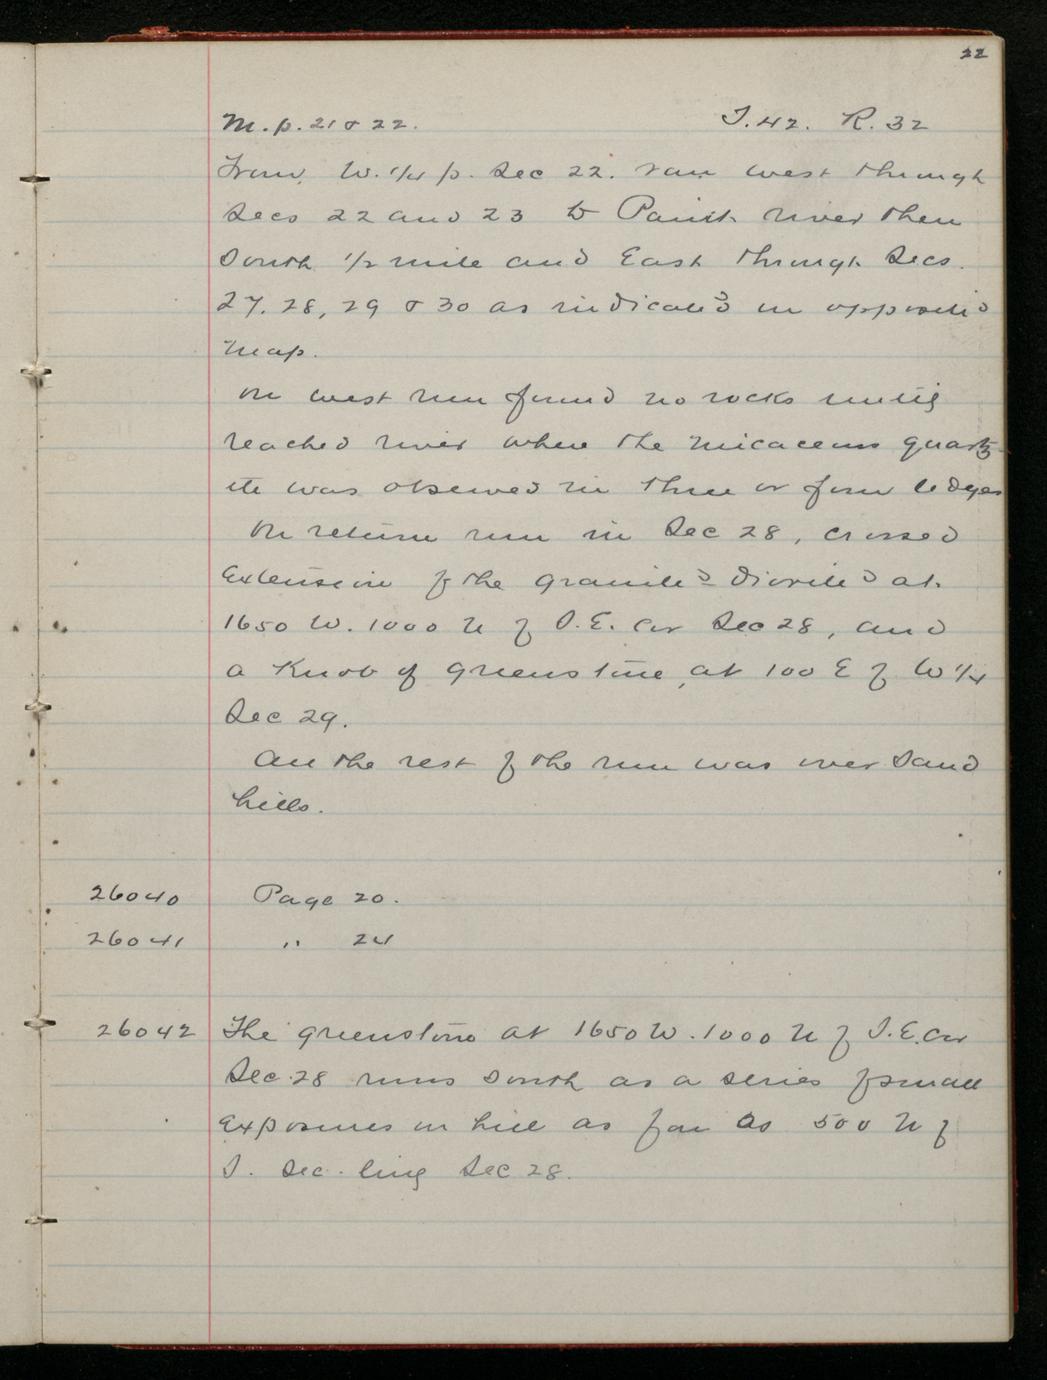 22
M.p. 21 & 22. T.42. R.32
From W. 1/4 p. Sec 22. ran west through
Secs 22 and 23 to Paint river then
South 1/2 mile and East through Secs.
27, 28, 29 & 30 as indicated on opposite
map.
On west run found no rocks until
reached river where the micaceous quartz-
ite was observed in three or four ledges
On return run in Sec 28, crossed
Extension of the granite & diorite at
1650 W. 1000 N of S.E. Cor Sec 28, and
a Knob of greenstone, at 100 E of W 1/4
Sec 29.
All the rest of the run was over Sand
hills.
26040 Page 20.
26041 " 24
26042 The greenstone at 1650 W. 1000 N of S.E. Cor
Sec. 28 runs South as a series of small
Exposures on hill as far as 500 N of
S. Sec. line Sec 28.